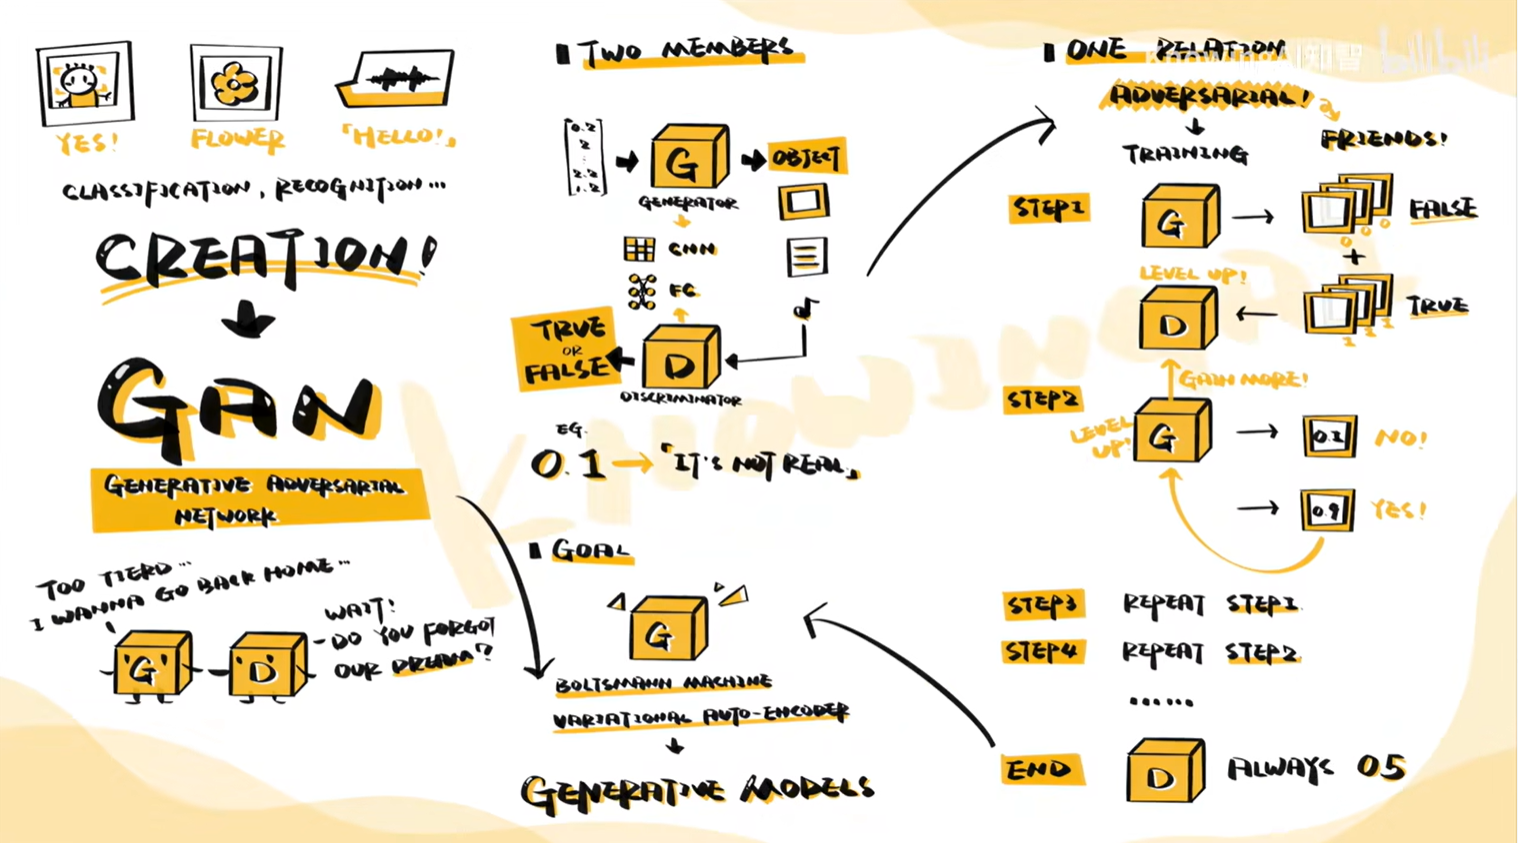 YES!
FLOWER
「HELLO!」
CLASSIFICATION, RECOGNITION...
CREATION!
GAN
GENERATIVE ADVERSARIAL
NETWORK
TOO TIERD...
I WANNA GO BACK HOME...
WAIT!
DO YOU FORGOT
OUR DREAM?
G
D
TWO MEMBERS
0.2
2
⋮
2.2
1.2
G
OBJECT
GENERATOR
CNN
FC
TRUE
OR
FALSE
D
DISCRIMINATOR
EG.
0.1 → 「IT'S NOT REAL」
GOAL
G
BOLTSMANN MACHINE
VARIATIONAL AUTO-ENCODER
GENERATIVE MODELS
ONE RELATION
ADVERSARIAL!
FRIENDS!
TRAINING
STEP1
G
FALSE
0 0 0
+
LEVEL UP!
D
TRUE
1 1 1
GAIN MORE!
STEP2
LEVEL
UP!
G
0.1
NO!
0.9
YES!
STEP3 REPEAT STEP1
STEP4 REPEAT STEP2
......
END
D
ALWAYS 0.5
KNOWING
bilibili